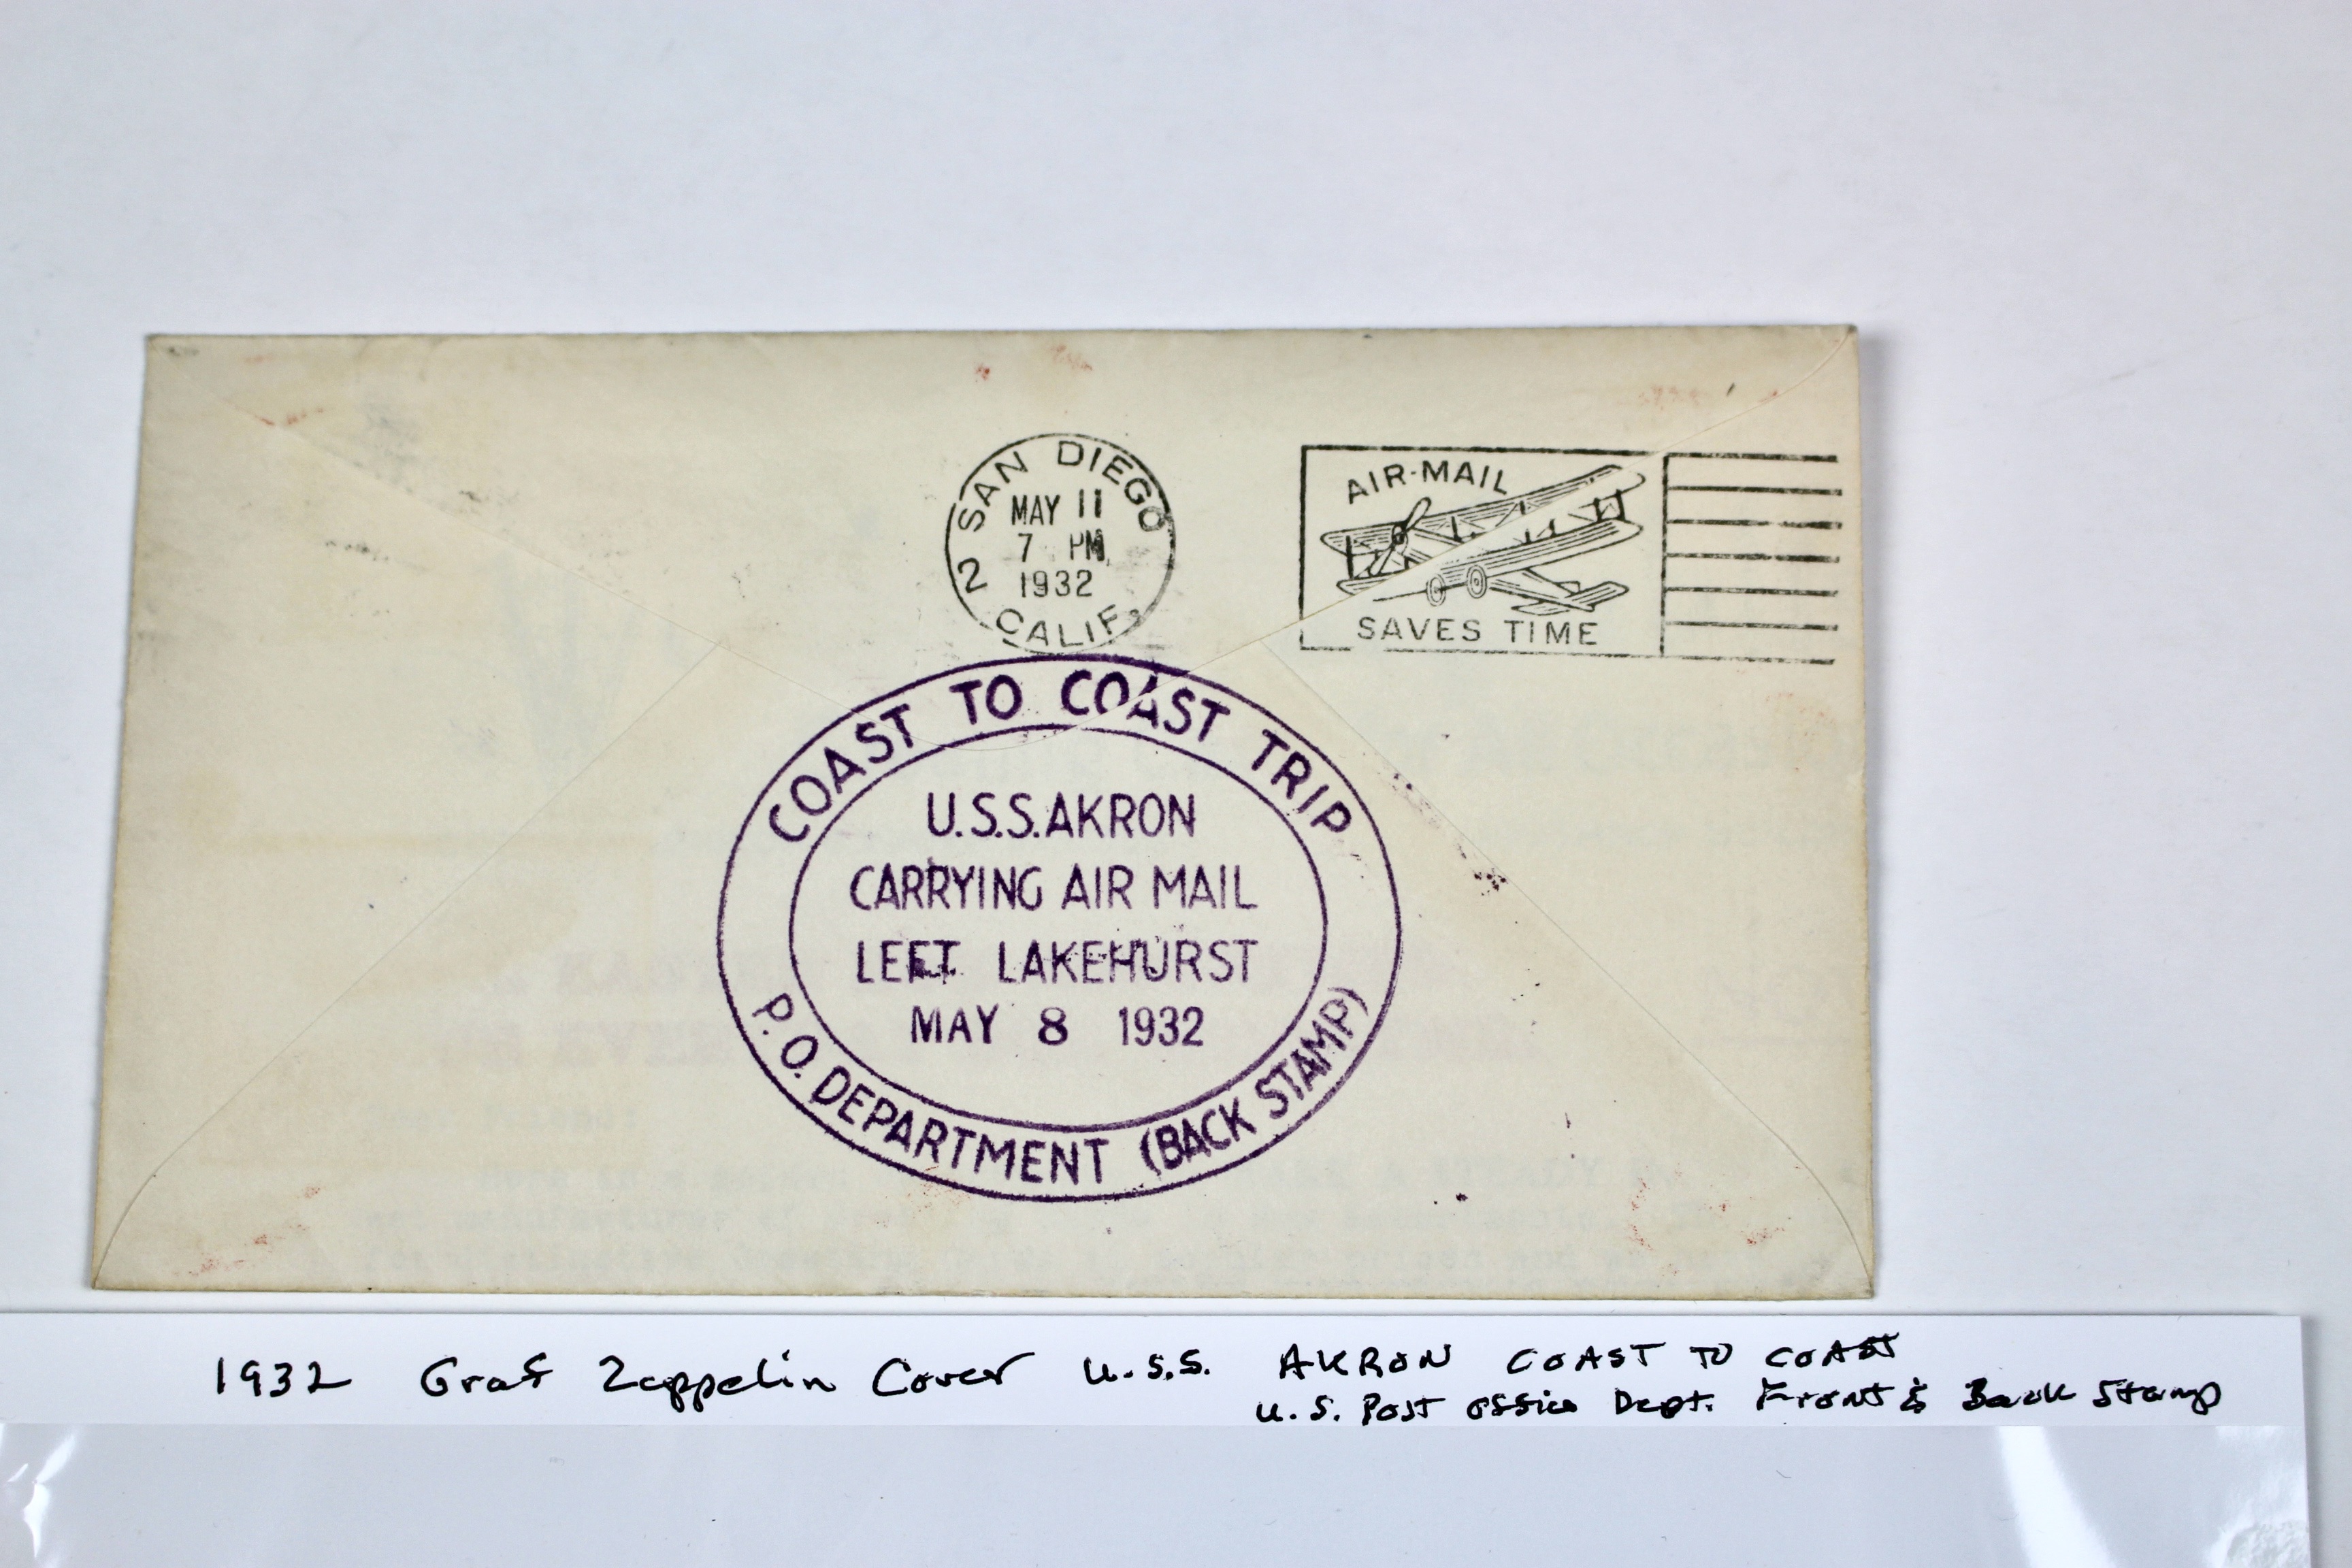 SAN DIEGO
MAY 11
7 PM
1932
2
CALIF.
AIR-MAIL
SAVES TIME
COAST TO COAST TRIP
U.S.S. AKRON
CARRYING AIR MAIL
LEFT LAKEHURST
MAY 8 1932
P.O. DEPARTMENT (BACK STAMP)
1932 Graf Zeppelin Cover U.S.S. AKRON COAST TO COAST
U.S. Post office Dept. Front & Back Stamp